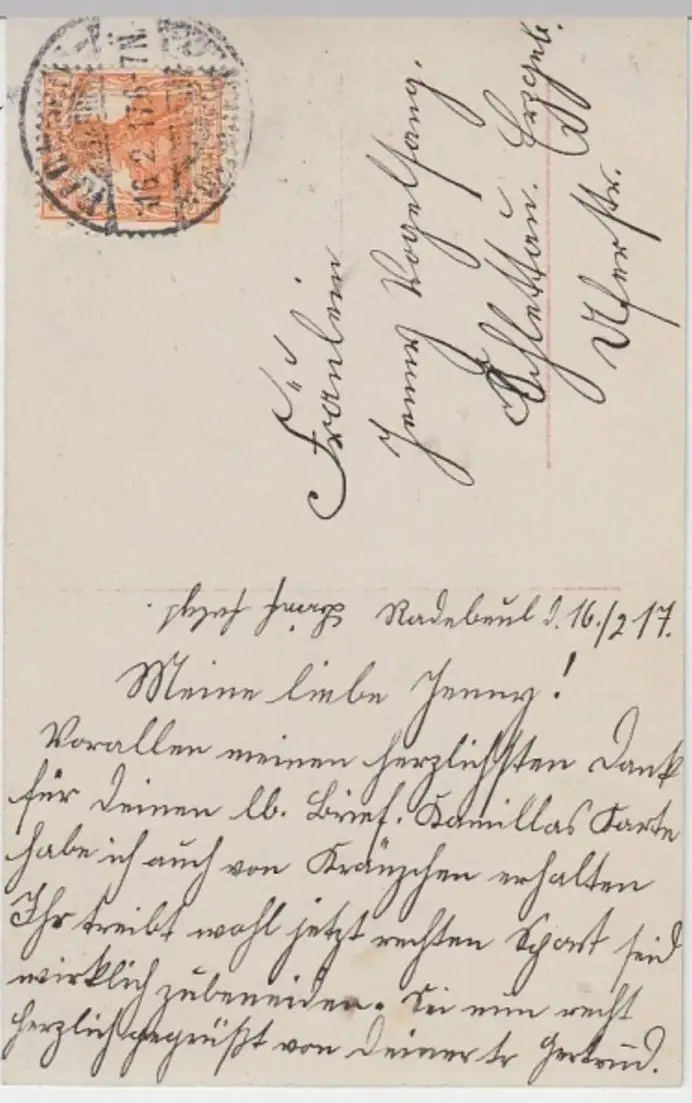 16.2.17.6-7N.
Fräulein
Jenny Vogelsang.
Schlettau. Erzgeb.
Uferstr.
Radebeul d. 16./2 17.
Meine liebe Jenny!
Vorallen meinen herzlichsten Dank
für Deinen lb. Brief. Kamillas Karte
habe ich auch von Kränzchen erhalten
Ihr treibt wohl jetzt rechten Sport seid
wirklich zubeneiden. Sei nun recht
herzlich gegrüßt von Deiner tr Gertrud.